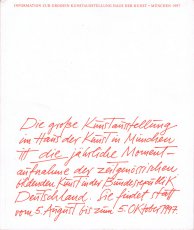 INFORMATION ZUR GROSSEN KUNSTAUSSTELLUNG HAUS DER KUNST · MÜNCHEN · 1997
Die große Kunstausstellung
im Haus der Kunst in München
ist die jährliche Moment-
aufnahme der zeitgenössischen
bildenden Kunst in der Bundesrepublik
Deutschland. Sie findet statt
vom 5. August bis zum 5. Oktober 1997.